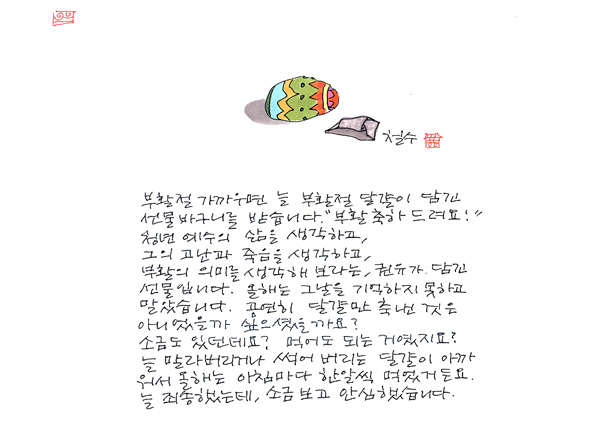 철수
부활절 가까우면 늘 부활절 달걀이 담긴
선물바구니를 받습니다. "부활 축하 드려요!"
청년 예수의 삶을 생각하고,
그의 고난과 죽음을 생각하고,
부활의 의미를 생각해 보라는, 권유가 담긴
선물입니다. 올해는 그날을 기억하지 못하고
말았습니다. 공연히 달걀만 축낸 것은
아니었을까 싶으셨을까요?
소금도 있던데요? 먹어도 되는 거였지요?
늘 말라버리거나 썩어 버리는 달걀이 아까
워서 올해는 아침마다 한알씩 먹었거든요.
늘 죄송했는데, 소금 보고 안심했습니다.